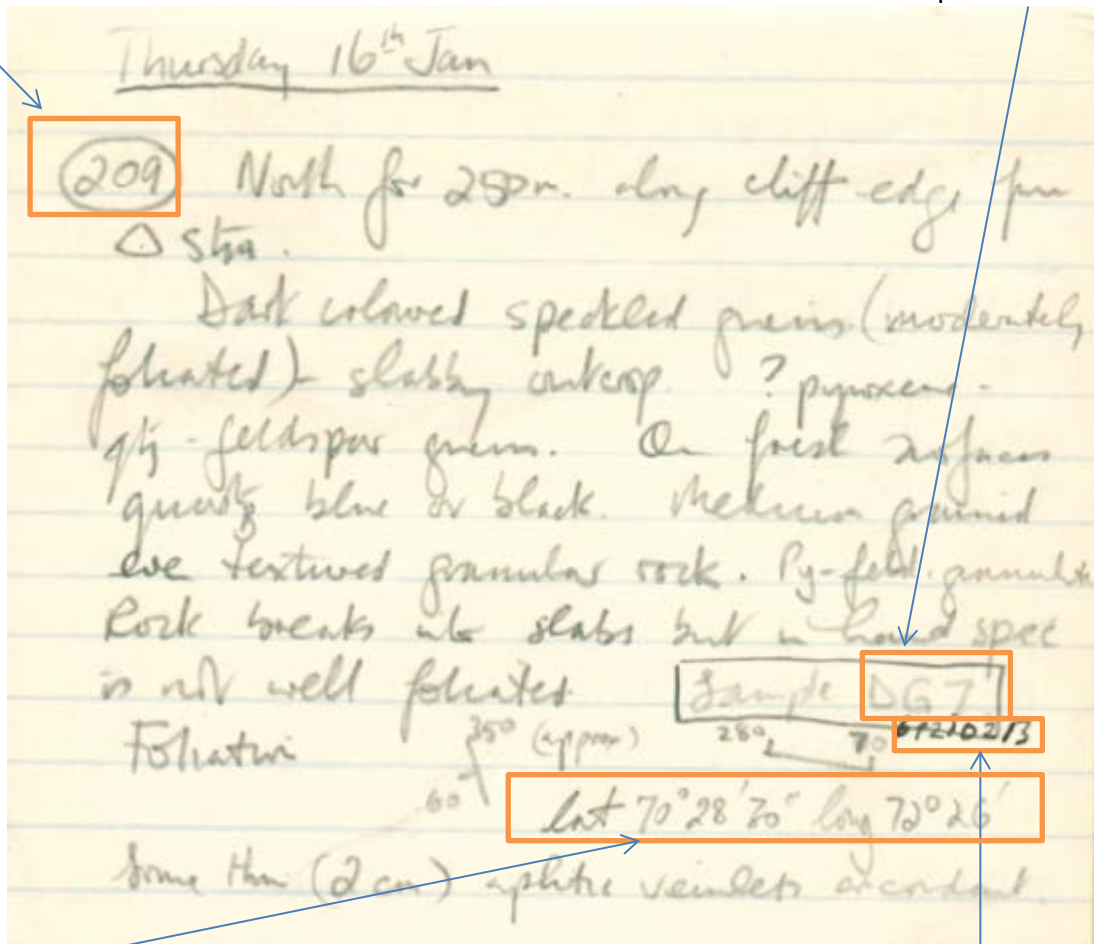 Thursday 16th Jan
209 North for 250m. along cliff-edge from
△ Stn.
Dark coloured speckled gneiss (moderately
foliated) - slabby outcrop. ? pyroxene -
qtz - feldspar gneiss. On fresh surfaces
quartz blue or black. Medium grained
eve textured granular rock. Py-feld. granulite
Rock breaks into slabs but in hand spec
is not well foliated Sample DG7
Foliation 350 (approx) 280 70
60 lat 70°28'30" long 72°26'
Some thin (2 cm) aplitic veinlets